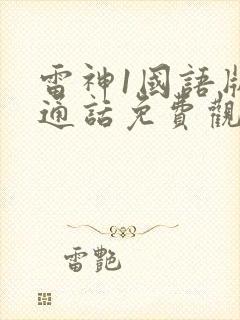 雷神1國語版
通話免費觀
雷艷